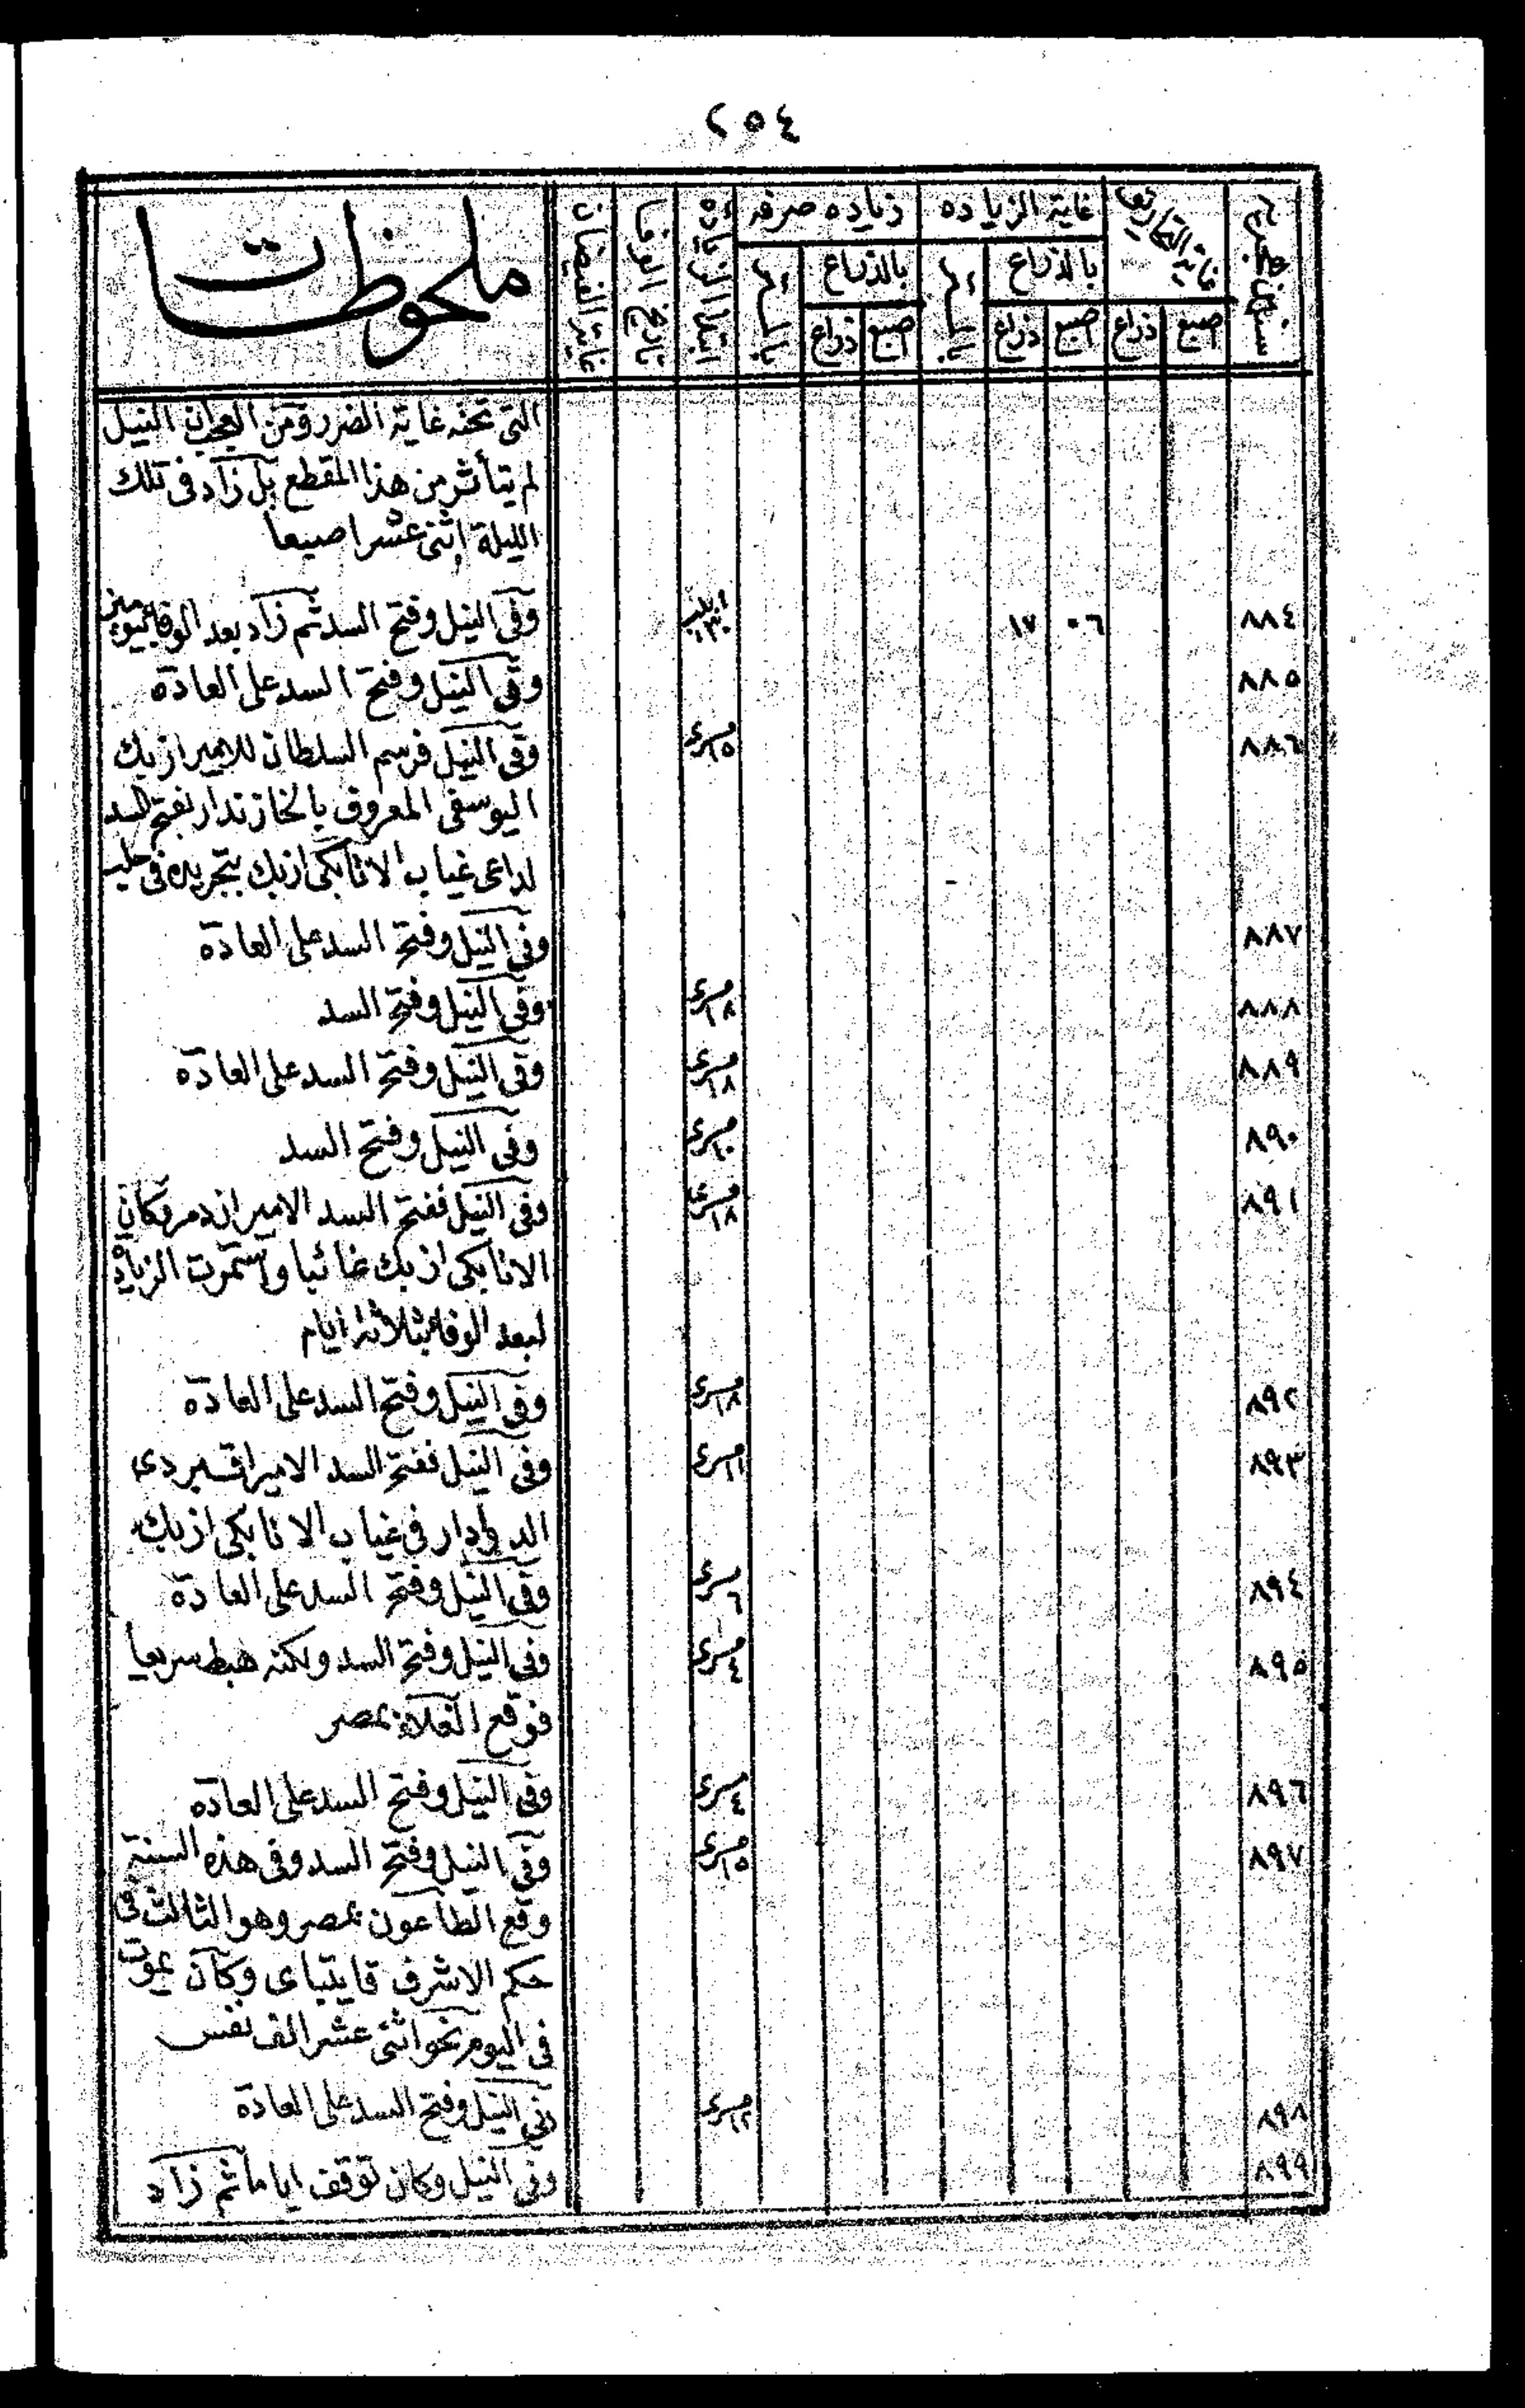 ٢٥٤
سنين هجرية
غاية التحاريق
غاية الزياده
زياده صرفه
ابتداء الزيادة
تاريخ الوفا
غاية الفيضان
ملحوظات
بالذراع
بالذراع
اصبع
ذراع
اصبع
ذراع
اصبع
ذراع
التى تحته غاية الضرر ومن العجب ان النيل
لم يتأثر من هذا المقطع بل زاد فى تلك
الليلة اثنى عشر اصبعا
٨٨٤ ٠٦ ١٧ وفى النيل وفتح السد ثم زاد بعد الوفا بيومين
٨٨٥ وفى النيل وفتح السد على العادة
٨٨٦ مسرى ١٥ وفى النيل فرسم السلطان للامير ازبك
اليوسفى المعروف بالخازندار بفتح السد
لداعى غياب الاتابكى ازبك بتجريده فى حلب
٨٨٧ وفى النيل وفتح السد على العادة
٨٨٨ مسرى ١٨ وفى النيل وفتح السد
٨٨٩ مسرى ١٨ وفى النيل وفتح السد على العادة
٨٩٠ مسرى ١٠ وفى النيل وفتح السد
٨٩١ مسرى ١٨ وفى النيل ففتح السد الامير ازدمر وكان
الاتابكى ازبك غائبا واستمرت الزيادة
لبعد الوفا بثلاثة ايام
٨٩٢ مسرى ١٨ وفى النيل وفتح السد على العادة
٨٩٣ مسرى ١١ وفى النيل ففتح السد الامير اقبردى
الدوادار فى غياب الاتابكى ازبك
٨٩٤ مسرى ٦ وفى النيل وفتح السد على العادة
٨٩٥ مسرى ٤ وفى النيل وفتح السد ولكنه هبط سريعا
فوقع الغلاء بمصر
٨٩٦ مسرى ٤ وفى النيل وفتح السد على العاده
٨٩٧ مسرى ١٥ وفى النيل وفتح السد وفى هذه السنة
وقع الطاعون بمصر وهو الثالث فى
حكم الاشرف قايتباى وكان يموت
فى اليوم نحو اثنى عشر الف نفس
٨٩٨ مسرى ١٢ وفى النيل وفتح السد على العادة
٨٩٩ وفى النيل وكان توقف اياما ثم زاد